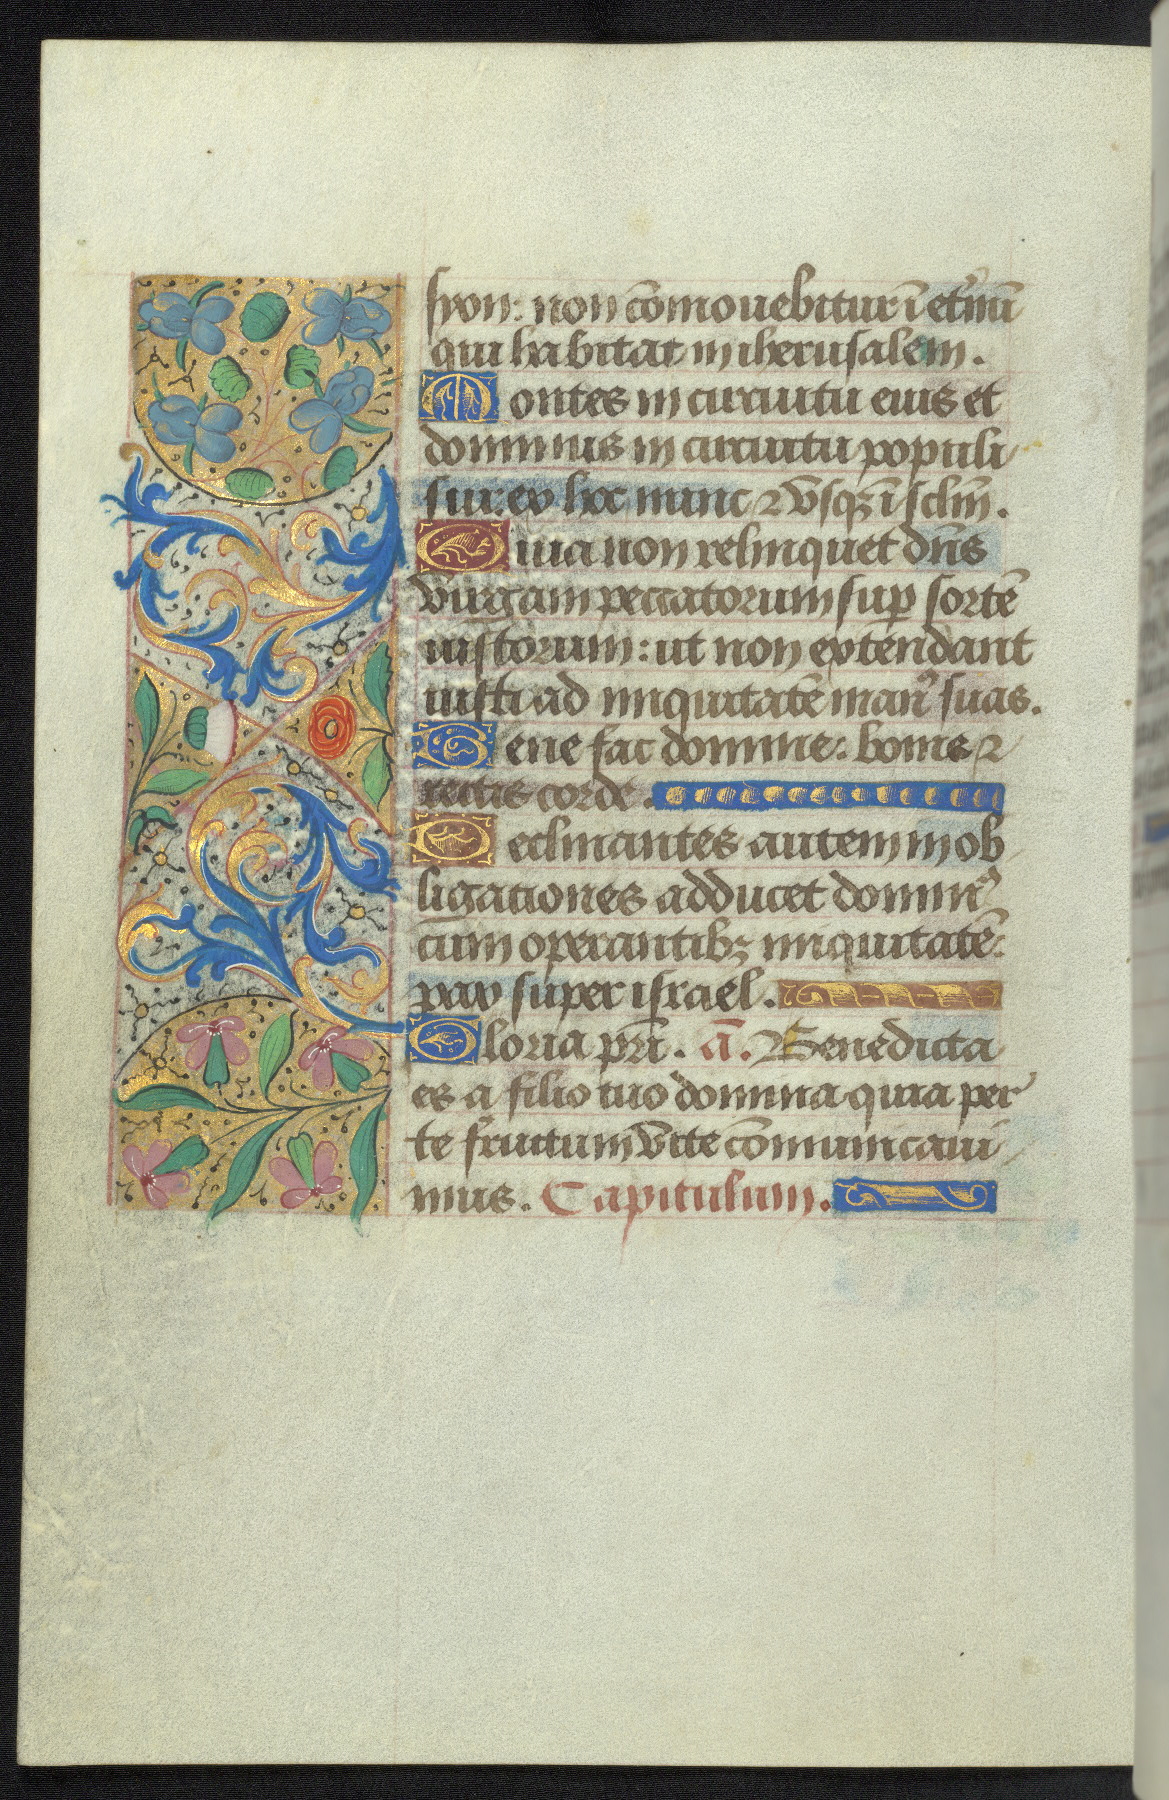 syon: non cōmouebitur ī et͛nū
qui habitat in iherusalem.
Montes in circuitu eius et
dominus in circuitu populi
sui: ex hoc nunc ⁊ vsqꝫ ī sclm̄.
Quia non relinquet dn̄s
virgam peccatorum suꝑ sortē
iustorum: ut non extendant
iusti ad iniquitatē man᷒ suas.
Bene fac domine: bonis ⁊
rectis corde.
Declinantes autem in ob
ligationes adducet domin᷒
cum operantibꝫ iniquitatē:
pax super israel.
Gloria pr̄i. a᷒n. Benedicta
es a filio tuo domina quia per
te fructum vite cōmunicaui
mus. Capitulum.